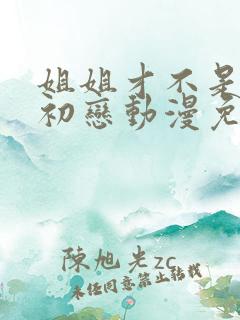 姐姐才不是
初戀動漫免
陳旭光zc
未經同意禁止轉載